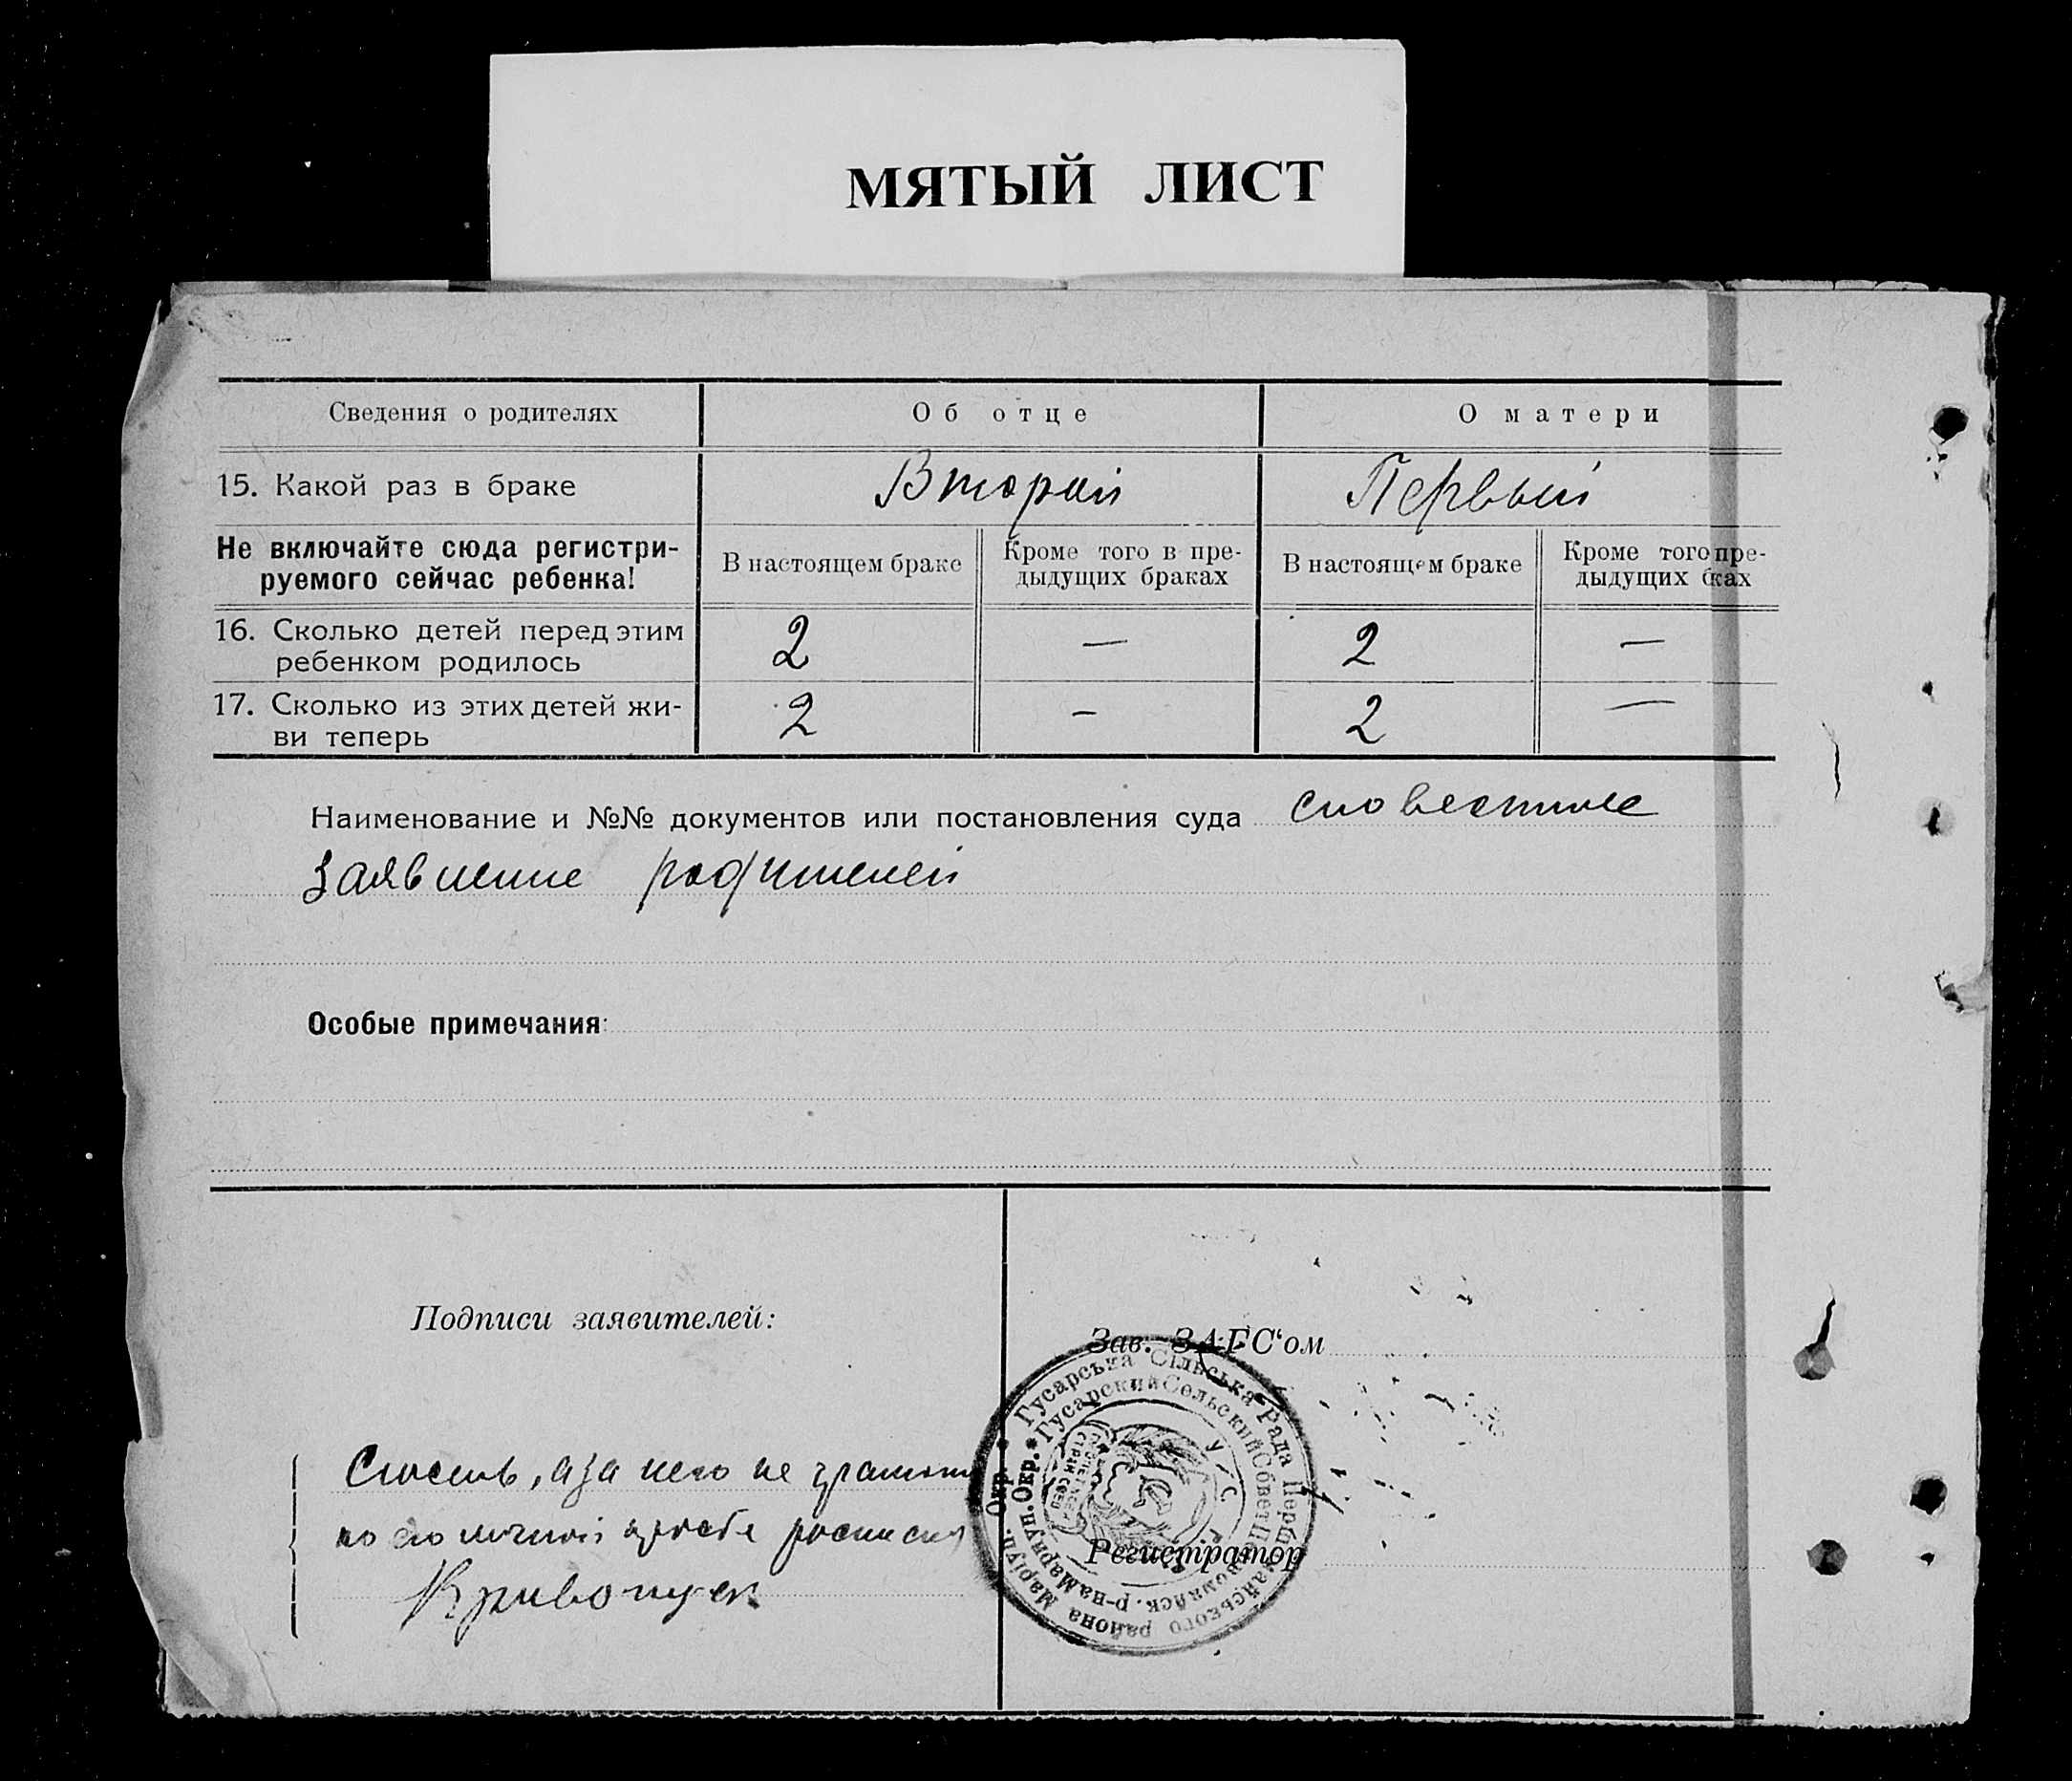 МЯТЫЙ ЛИСТ
Сведения о родителях
Об отце
О матери
15. Какой раз в браке
Второй
Первый
Не включайте сюда регистри-
руемого сейчас ребенка!
В настоящем браке
Кроме того в пре-
дыдущих браках
В настоящем браке
Кроме того пре-
дыдущих бках
16. Сколько детей перед этим
ребенком родилось
2
—
2
—
17. Сколько из этих детей жи-
ви теперь
2
-
2
—
Наименование и №№ документов или постановления суда словестное
заявление родителей
Особые примечания:
Подписи заявителей:
а за него не грамотн
по его личной просьбе
Кривопуск
Зав. ЗАГС‘ом
Регистратор
Гусарська Сільська Рада Першомайського района Маріуп. Окр.
Гусарский Сельский Совет Первомайск. р-на Мариуп. Окр.
У С